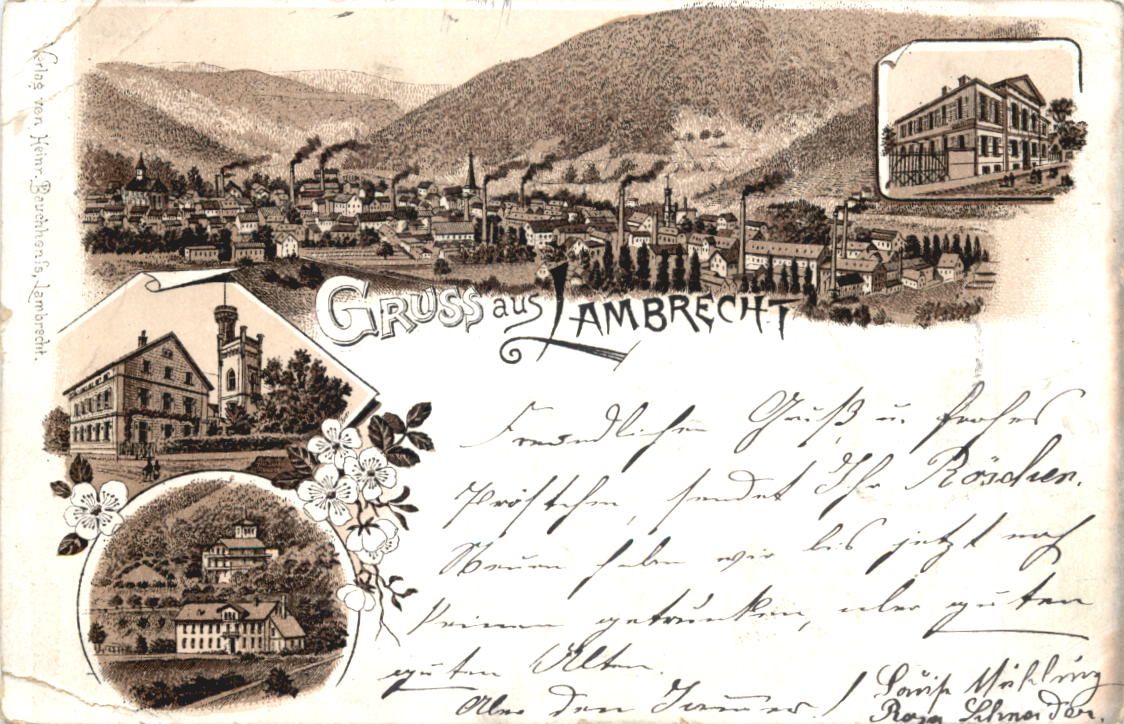 Verlag von Heinr. Bauchhenß, Lambrecht.
GRUSS aus LAMBRECHT
Freundlichen Gruß u. frohes
Pröstchen, sendet Ihr Röschen.
Neuen haben wir bis jetzt noch
keinen getrunken, aber guten
guten Alten.
Aber den Jammer!
Louise
Rosa Schneider